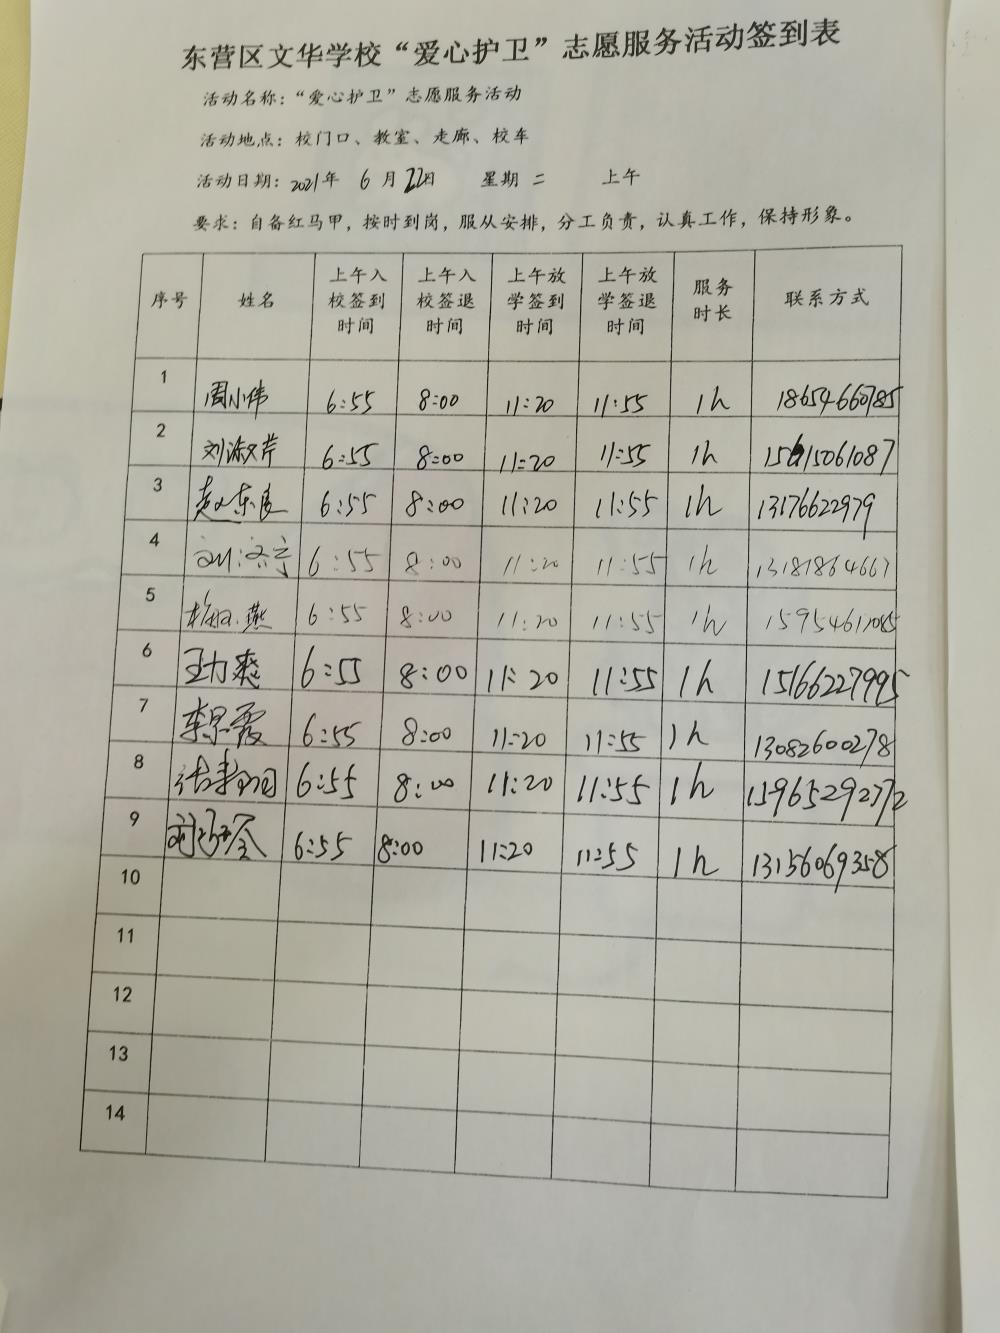 东营区文华学校“爱心护卫”志愿服务活动签到表
活动名称：“爱心护卫”志愿服务活动
活动地点：校门口、教室、走廊、校车
活动日期：2021年 6月22日 星期二 上午
要求：自备红马甲，按时到岗，服从安排，分工负责，认真工作，保持形象。
序号 姓名 上午入校签到时间 上午入校签退时间 上午放学签到时间 上午放学签退时间 服务时长 联系方式
1 周小伟 6:55 8:00 11:20 11:55 1h 18654660785
2 刘淑芹 6:55 8:00 11:20 11:55 1h 15615061087
3 赵东良 6:55 8:00 11:20 11:55 1h 13176622979
4 6:55 8:00 11:20 11:55 1h 13181864667
5 6:55 8:00 11:20 11:55 1h
6 王力爽 6:55 8:00 11:20 11:55 1h 15166227995
7 6:55 8:00 11:20 11:55 1h 13082600278
8 6:55 8:00 11:20 11:55 1h 15965292772
9 6:55 8:00 11:20 11:55 1h 13156069358
10
11
12
13
14